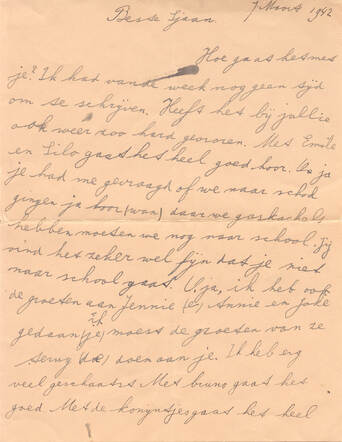 7 Maart 1942
Beste Sjaan.
Hoe gaat het met
je? Ik had van de week nog geen tijd
om te schrijven. Heeft het bij jullie
ook weer zoo hard gevroren. Met Emile
en Lilo gaat het heel goed hoor. O, ja
je had me gevraagd of we naar school
gingen ja hoor (wan) daar we gaskachels
hebben moeten we nog naar school. Jij
vind het zeker wel fijn dat je niet
naar school gaat. O, ja, ik heb ook
de groeten aan Jennie (e) Annie en Joke
gedaan (je) ik moest de groeten van ze
terug (de) doen aan je. Ik heb erg
veel geschaatst. Met bruno gaat het
goed. Met de konijntjes gaat het heel